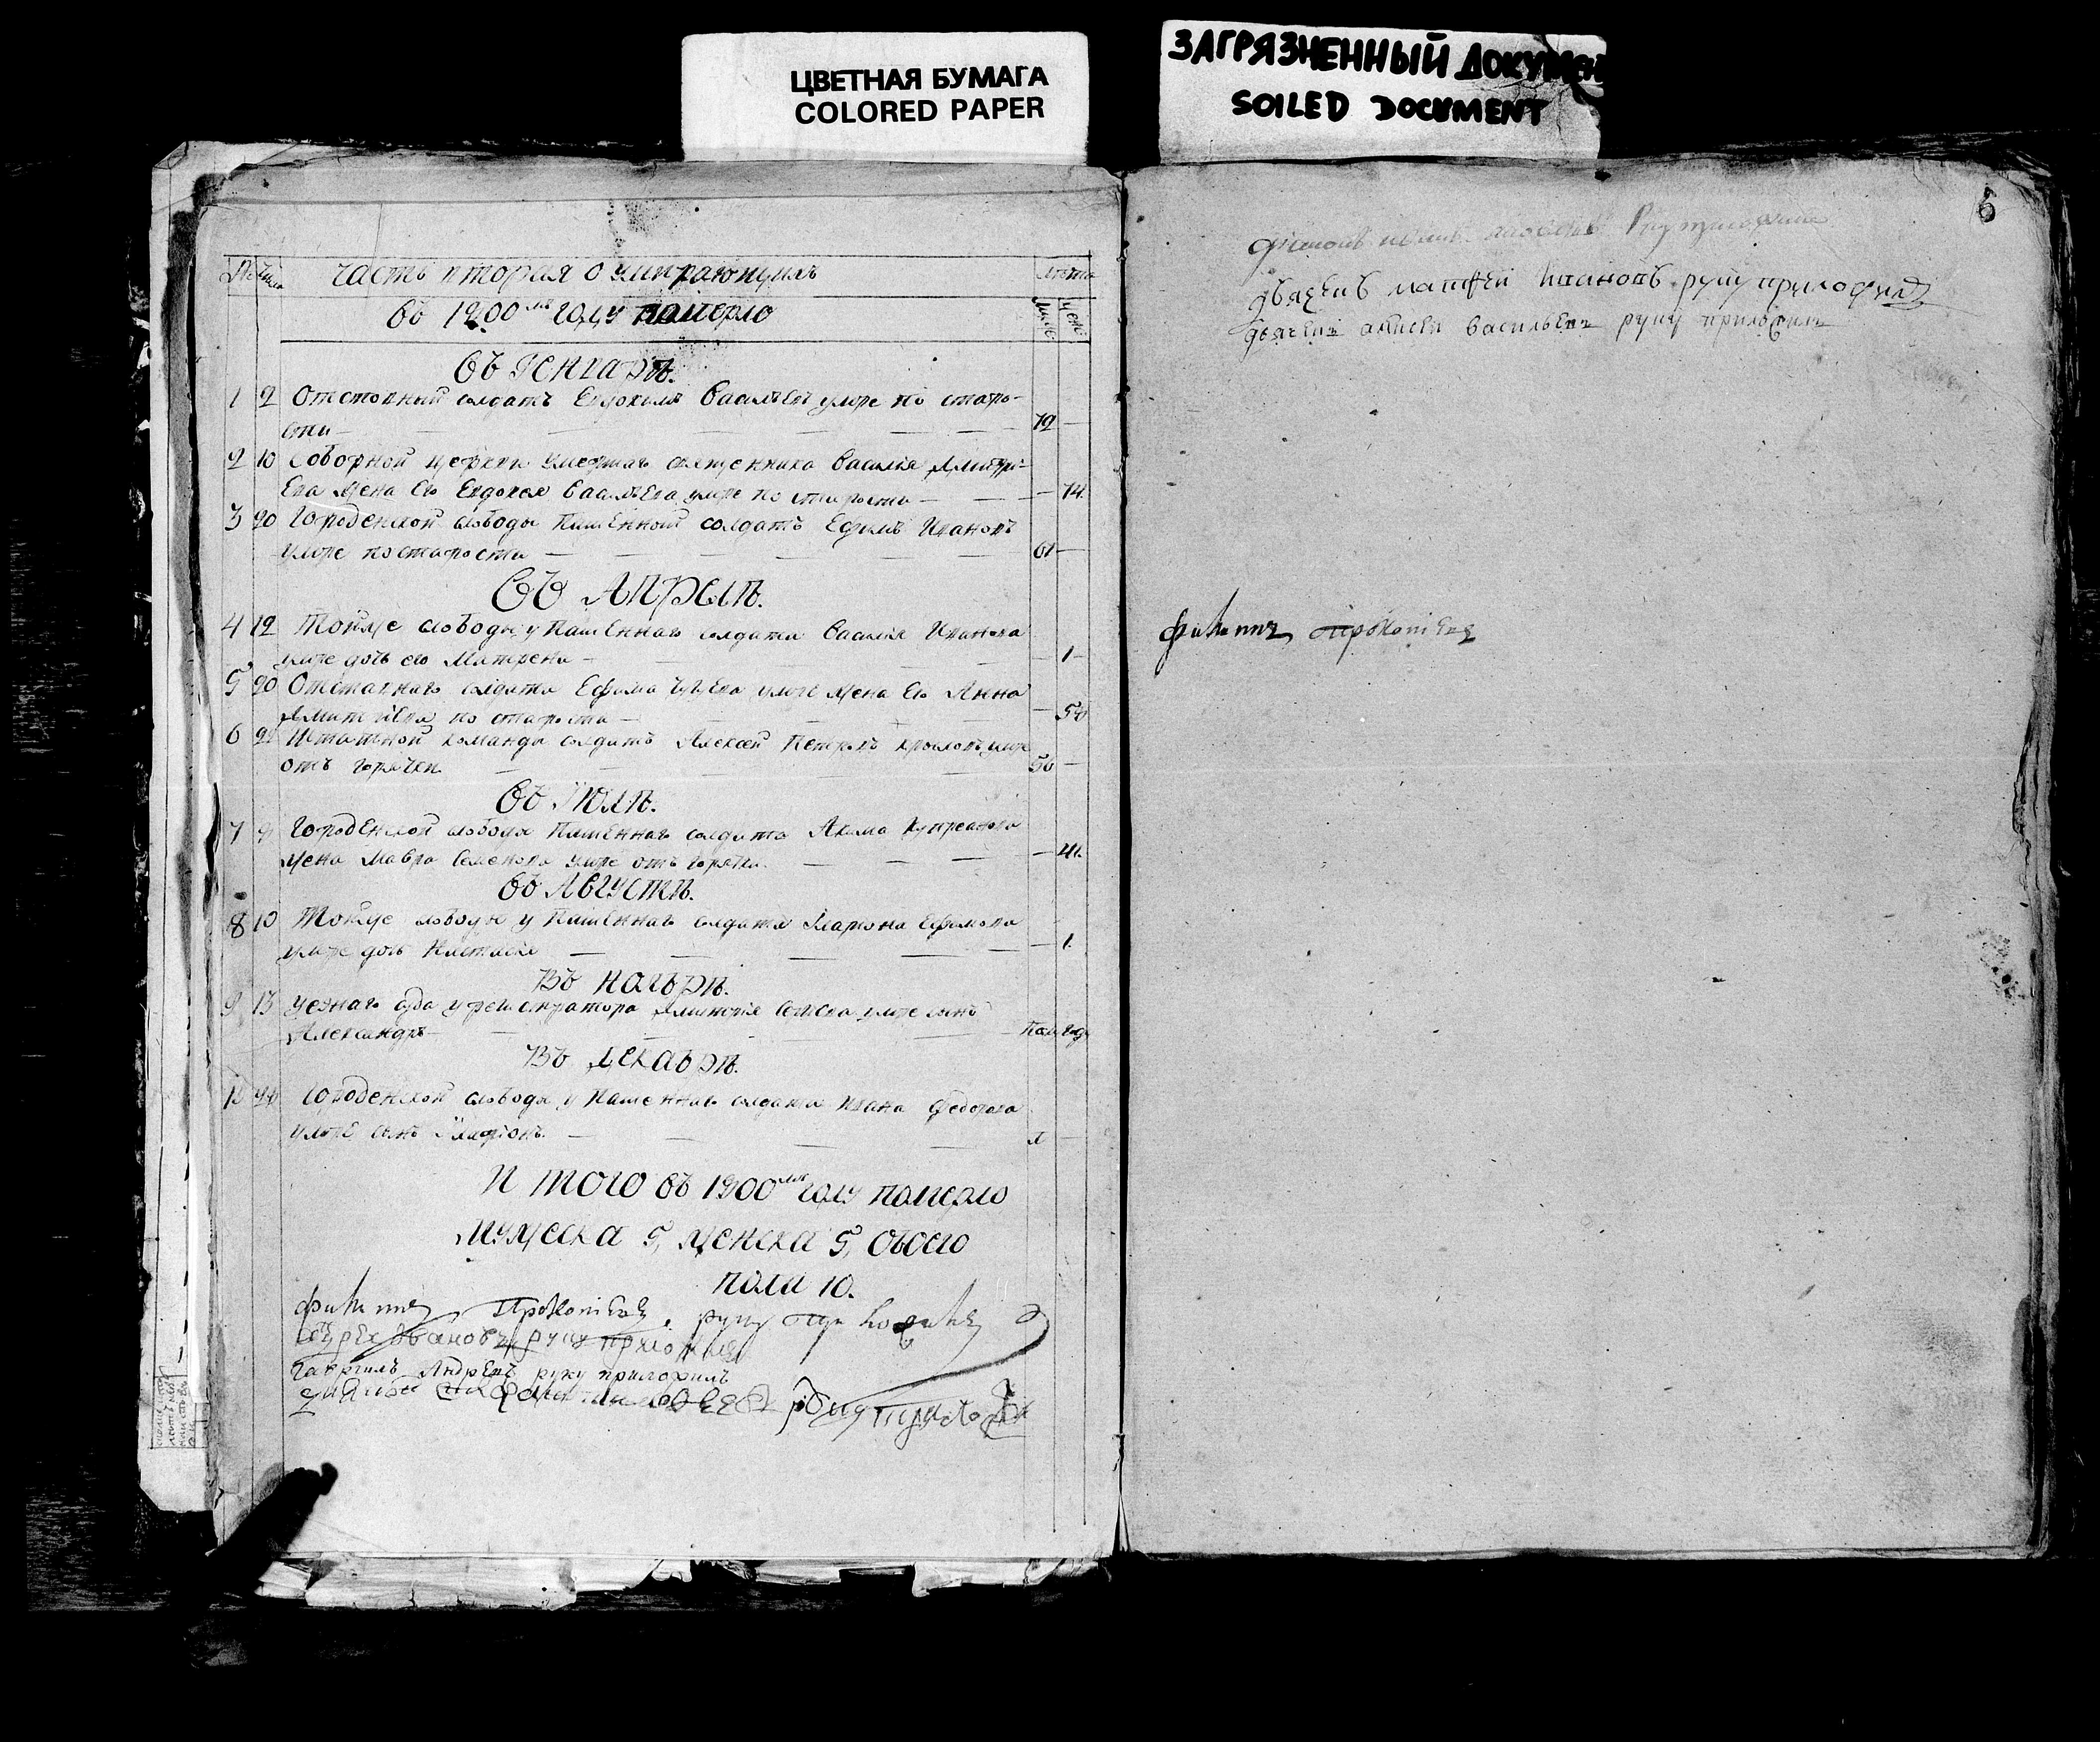 ЦВЕТНАЯ БУМАГА
COLORED PAPER
ЗАГРЯЗНЕННЫЙ ДОКУМЕН
SOILED DOCUMENT
№ Числа Часть вторая о умирающихъ Лѣта
въ 1800мъ году померло Муже Жен
Въ Генгарѣ.
1 2 Отставный солдатъ Евдокимъ Васильевъ умре по старо-
сти 72
2 10 Соборной церкви умершаго священника Василія Дмитрі-
ева жена Его Евдокея Васильева умре по старости 74.
3 20 Городенской слободы Пашенной солдатъ Ефимъ Ивановъ
умре по старости 61
Въ Апрелѣ.
4 12 Тойже слободы у Пашеннаго солдата Василія Иванова
умре дочь его Матрена 1
5 20 Отставнаго солдата Ефима умре жена Его Анна
по старости
6 Штатной команды солдатъ Алексей Петровъ умре
отъ горячки
Въ Июлѣ.
7 9 Городенской слободы Пашеннаго солдата Акима Купреанова
жена Мавра Семенова умре отъ горячки 41.
Въ Августѣ.
8 10 Тойже слободы у Пашеннаго солдата Илариона Ефимова
умре дочь Настасія 1.
Въ Наябрѣ.
9 13 уезнаго суда у регистратора Дмитрія умре сынъ
Александръ Пол год
Въ Декабрѣ.
10 Городенской слободы у Пашеннаго солдата Ивана Федорова
умре сынъ
И того въ 1800мъ году померло
Мужеска 5, женска 5, обоего
пола 10.
Филиппъ Прокопіевъ руку приложилъ
Ивановъ руку приложилъ
Гаврилъ Андреевъ руку приложилъ
6
дьячекъ матфей Ивановъ руку приложилъ
дьячекъ алексеи васильевъ руку приложилъ
филиппъ прокопіевъ